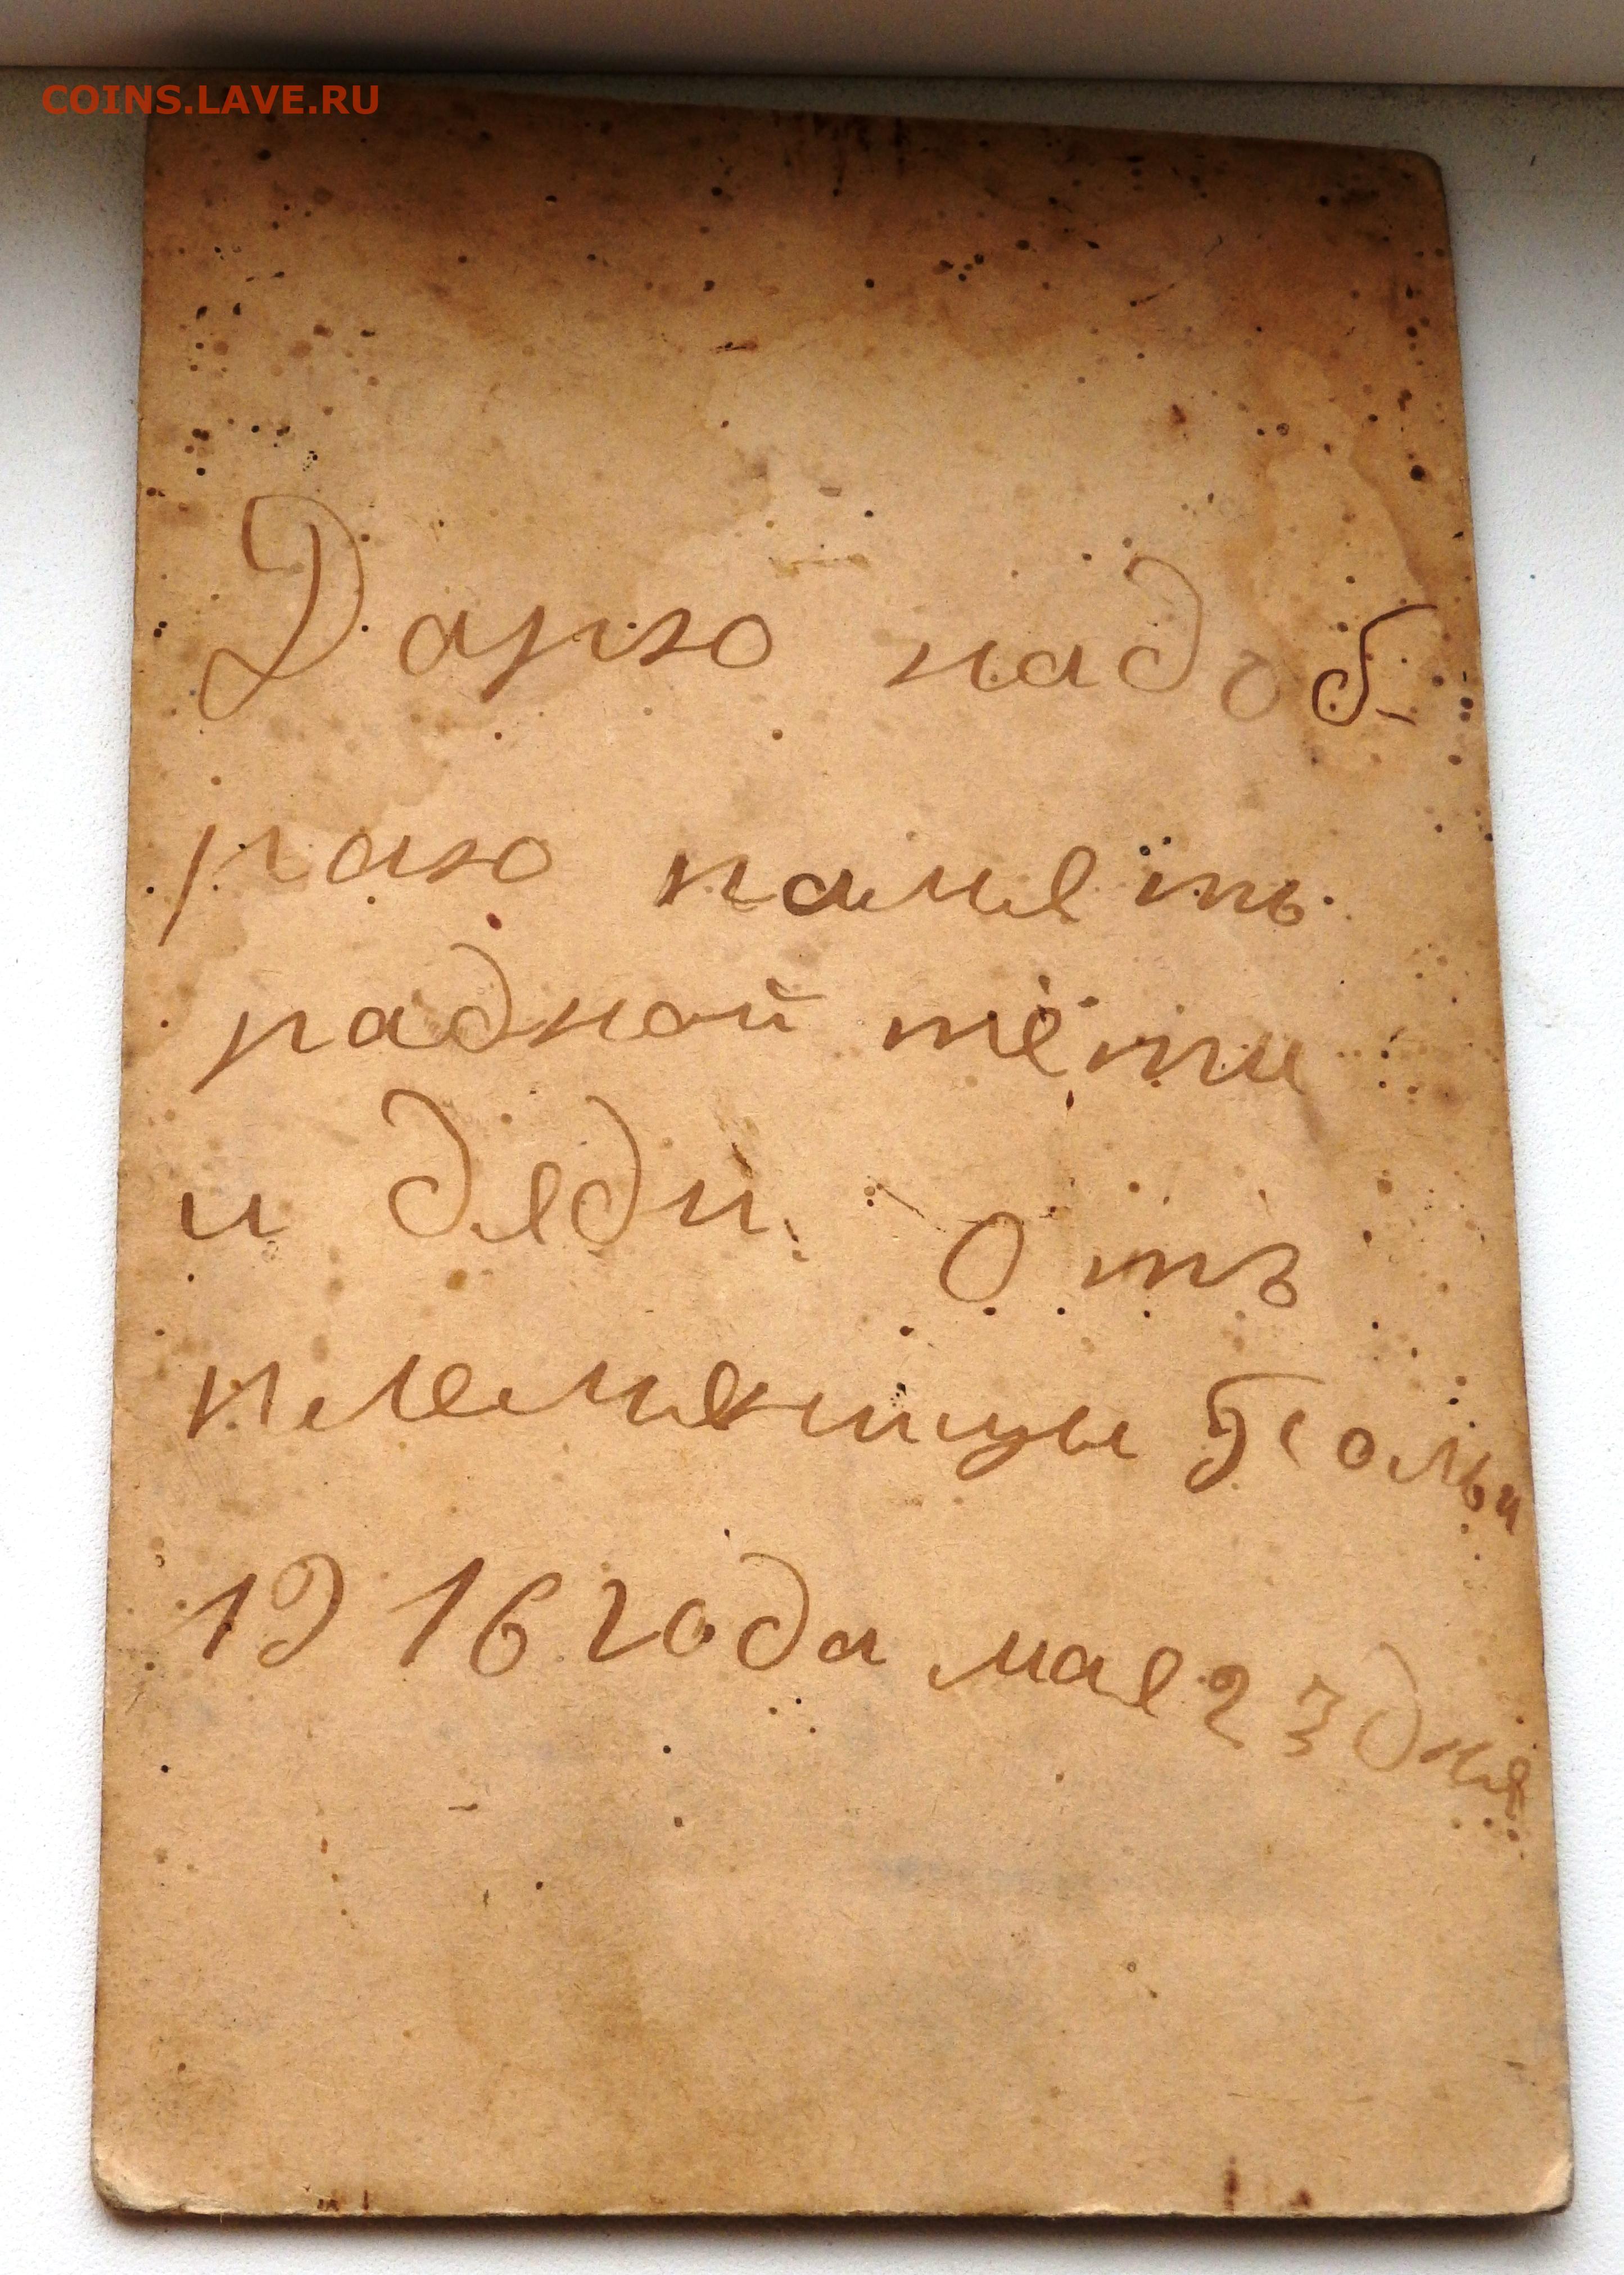 COINS.LAVE.RU
Дарю надоб-
раю памѧть
радной тёти
и дяди. Отъ
племянницы Польи
1916 года мая 23 дня